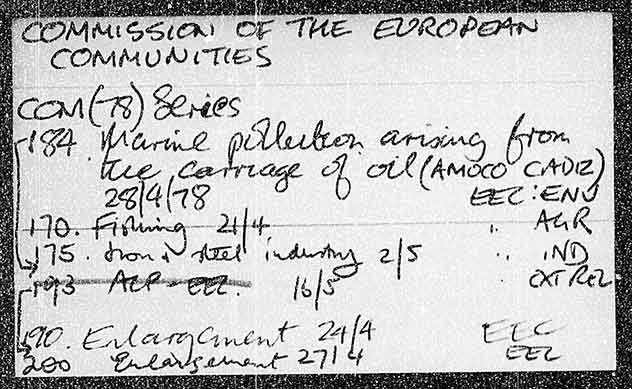 COMMISSION OF THE EUROPEAN
COMMUNITIES
COM(78) Series
184. Marine pollution arising from
the carriage of oil (AMOCO CADIZ)
28/4/78 EEC: ENV
170. Fishing 21/4 " AGR
175. Iron & steel industry 2/5 " IND
193 ACP - EEC. 16/5 " EXT REL
190. Enlargement 24/4 EEC
200 Enlargement 27/4 EEC